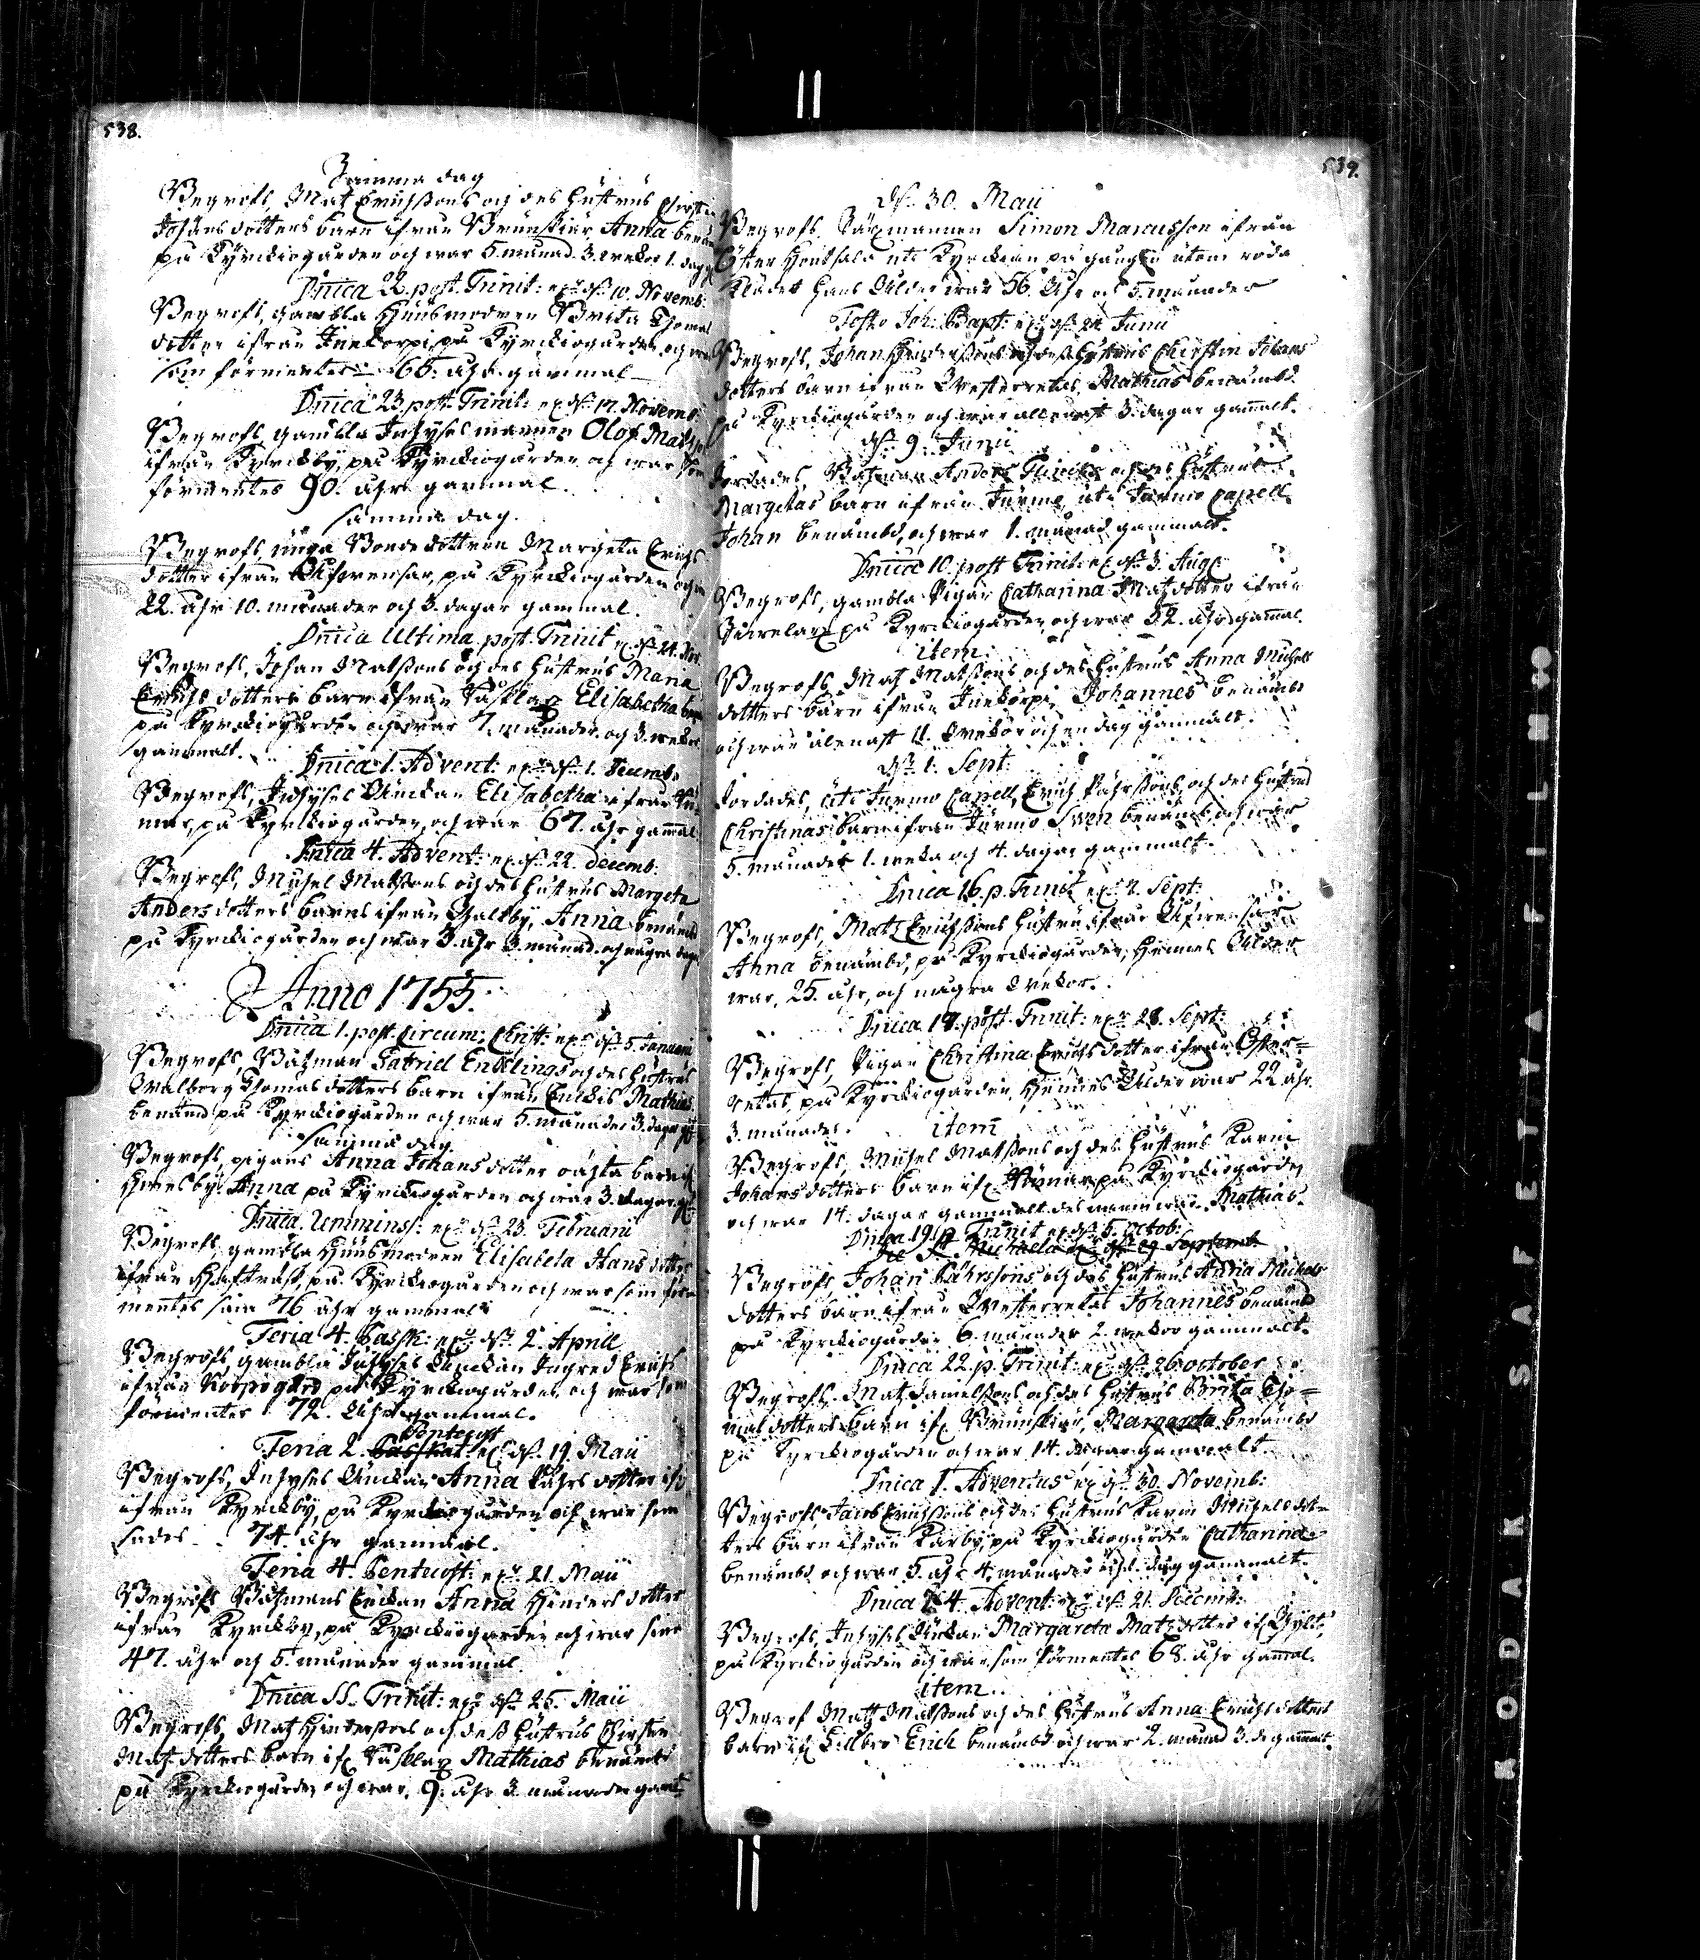 538.
Samma dag
Begrofs, Mat Erichssons och des hustrus Chirstin
Johans dotters barn ifrån Brunskiär Anna benäm
på Kyrkiogården och war 5. månad. 3. wekor 1. dag
Dnica 22. post. Trinit: d. 10. Novemb:
Begrofs, gambla Huusmodren Brita Thomas
dotter ifrån Innekorpi, på Kyrkiogården och war
som förmentes 66. åhr gammal
Dnica 23. post. Trinit: d. 17. Novemb:
Begrofs, gambla Inhyses mannen Olof Mats
ifrån Kyrckby, på Kyrkiogården och war som
förmentes 90. åhr gammal.
Samma dag.
Begrofs, unga Bonde dottren Margeta Erichs
dotter ifrån på Kyrkiogården och
22. åhr 10. månader och 3. dagar gammal.
Dnica Ultima post. Trinit d. 24. Nov.
Begrofs, Johan Matssons och des hustrus Maria
Erichs dotters barn ifrån Elisabetha
på Kyrkiogården och war 7. månader och 3. wekor
gammalt. Dnica 1. Advent: d. 1. Decemb:
Begrofs, Inhyses Änckan Elisabetha ifrån
på Kyrkiogården, och war 67. åhr gamal
Dnica 4. Advent: d. 22. Decemb:
Begrofs, Michel Matssons och des hustrus Margeta
Anders dotters barns ifrån Anna benämd
på Kyrkiogården och war 3. åhr 3. månad. och några dagr
Anno 1755.
Dnica 1. post. Circum: Christ: d. 5. Januarii
Begrofs, Båtzman Gabriel Enklings och des hustrus
Walborg Thomas dotters barn ifrån Mathias
benämd på Kyrkiogården och war 5. månader 3. dagr
Samma dag
Begrofs, pigans Anna Johans dotter oächta barn
Anna på Kyrkiogården och war 3. dagar
Dnica. d. 23. Februarii
Begrofs, gambla Huusmodren Elisabeta Hans dotter
ifrån på Kyrkiogården och war som för
mentes 76 åhr gammal
Feria 4. Pasch: d. 2. April
Begrofs, gambla Inhyses Änckan Ingred Erichs
ifrån på Kyrkiogården och war som
förmentes 72. åhr gammal.
Pentecost
Feria 2. d. 19. Maii
Begrofs, Inhyses Änckan Anna Påhrs dotter
ifrån Kyrckby, på Kyrkiogården och war som
sades 74. åhr gammal.
Feria 4. Pentecost: 21. Maii
Begrofs Båtzmans Änckan Anna Hinders dotter
ifrån Kyrckby, på Kyrkiogården och war
47. åhr och 5. månader gammal.
Dnica SS. Trinit: d. 25. Maii
Begrofs, Mat Hinderssons och deß hustrus Chirstin
Mats dotters barn Mathias benämd
på Kyrkiogården och war 9. åhr 3. månader gamt
539.
d. 30. Maii
Begrofs. Simon Marcusson ifrån
uti Kyrckian på gången utom
hans ålder war 56. åhr och 5. månader
Festo Joh: Bapt: d. 24 Junii
Begrofs, Johan Hinderssons och deß hustrus Chirstin Johans
dotters barn ifrån Westerretas Mathias benämbd.
på Kyrkiogården och war allenast 3. dagar gamalt.
d. 9. Junii
Jordades, Båtzman Anders och des hustrus
Margetas barn ifrån Jurmo uti Jurmo Capell
Johan benämbd, och war 1. månad gammalt.
Dnica 10. post Trinit: d. 3. Aug:
Begrofs, gambla Pigan Catharina Matzdotter ifrån
på Kyrkiogården, och war 52. åhr gamal.
item.
Begrofs, Matz Matssons och des hustrus Anna Michels
dotters barn ifrån Innekorpi Johannes benämd
och war alenast 11. wekor och en dag gammalt.
d. 1. Sept:
Jordades, uti Jurmo Capell, Erich Påhrssons och des hustrus
Christinas barn ifrån Jurmo Swen benämd och war
5. månader 1. weka och 4. dagar gammalt.
Dnica 16. p. Trinit Sept:
Begrofs, Matz Erichssons hustru ifrån
Anna benämbd, på Kyrkiogården, hennes ålder
war, 25. åhr, och några wekor.
post. Trinit: 28. Sept:
Begrofs, Pigan Christina Erichs dotter ifrån Öster=
retas, på Kyrkiogården, hennes ålder war 22 åhr.
3. månader. item
Begrofs, Michel Matssons och des hustrus Karin
Johansdotters barn på Kyrkiogården
och war 14. dagar gammalt des namn war Mathias.
Dnica 19 p Trinit d. 5. Octob:
Michaelis d. 29 Septemb.
Begrofs Johan Påhrssons och des hustrus Anna Michels
dotters barn ifrån Westerretas Johannes benämd
på Kyrkiogården 6. månader 2. wekor gammalt.
Dnica 22. p. Trinit: d. 26 october
Begrofs, Matz Danielssons och des hustrus Brita Tho=
mas dotters barn Brunskiär, Margareta benämbd
på Kyrkiogården och war 14. dagar gammalt.
Dnica 1. Adventus d. 30. Novemb:
Begrofs Jacob Erichssons och des hustrus Karin Michelsdot=
ters barn ifrån på Kyrkiogården Catharina
benämbd. och war 5. åhr 4. månader och 1. dag gammalt.
Dnica 4. Advent: d. 21. Decemb:
Begrofs, Inhyses Änckan Margareta Matzdotter
på Kyrkiogården och war, som förmentes 68. åhr gamal.
item.
Begrof Matz Matssons och des hustrus Anna Erichs dotters
barn Erich benämbd och war 2. månad 3. d. gammalt.
KODAK SAFETY FILM